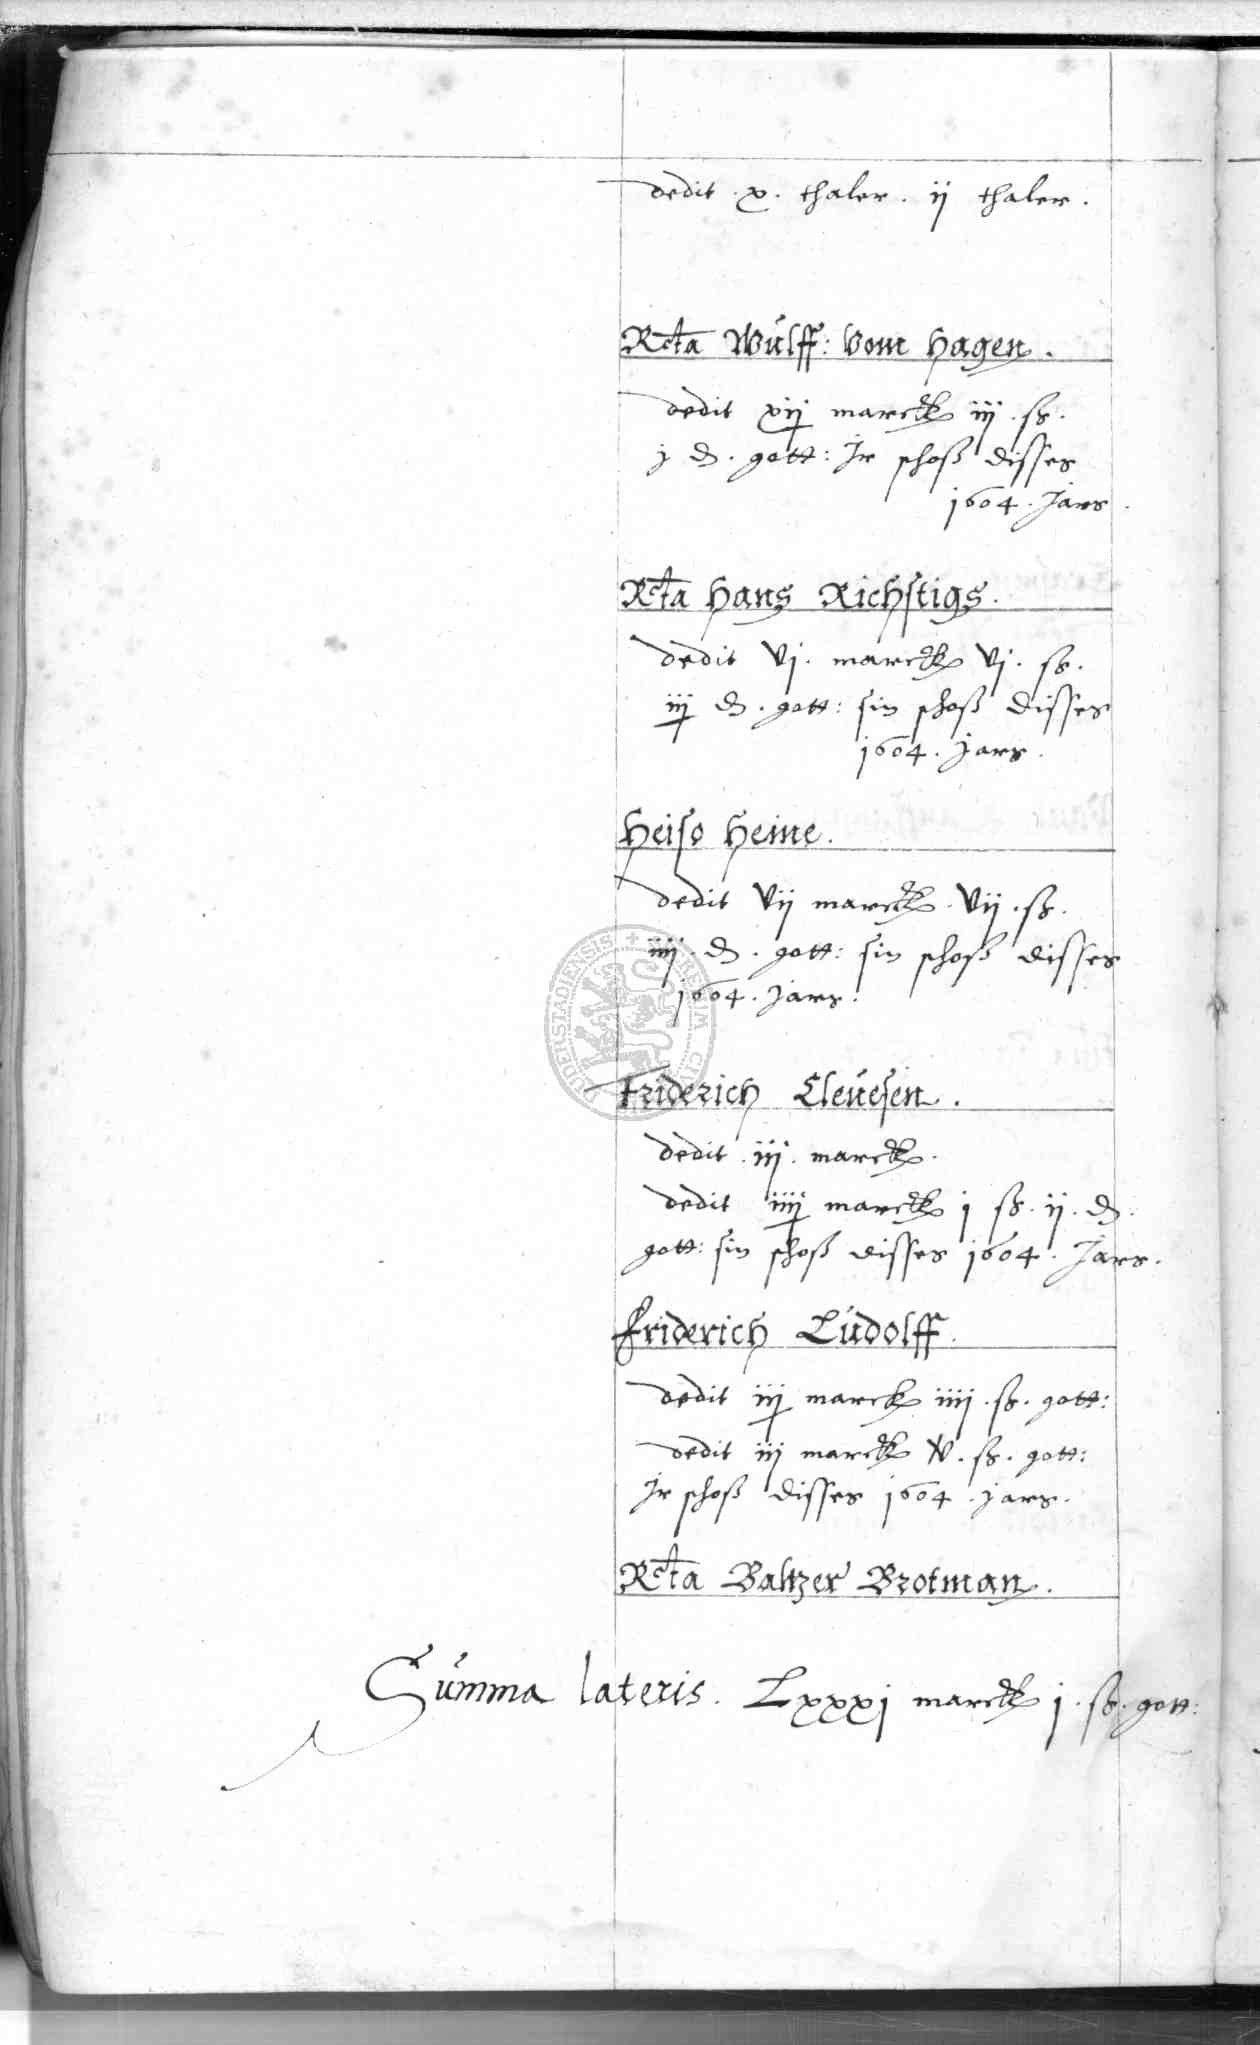 dedit . x . thaler . ij thaler .
Rcta Wulff : vom Hagen .
dedit xij marck iij . ß .
j d . gott : Jr schoß disses
1604 . Jars .
Rcta Hans Richstigs .
dedit vj . marck vj . ß .
iij d . gott : sin schoß disses
1604 . Jars .
Heiso Heine .
dedit vij marck . vij . ß .
iiij . d . gott : sin schoß disses
1604 . Jars .
Friderich Clevesen .
dedit . iij . marck .
dedit iiij marck j ß . ij . d .
gott : sin schoß disses 1604 . Jars .
Friderich Ludolff .
dedit iij marck iiij . ß . gott :
dedit iij marck v . ß . gott :
Jr schoß disses 1604 . Jars .
Rcta Baltzer Brotman .
Summa lateris . Lxxxj marck j . ß . gott :